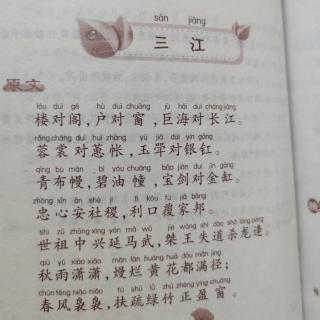 sān jiāng
三 江
原文
lóu duì gé hù duì chuāng jù hǎi duì cháng jiāng
楼对阁，户对窗，巨海对长江。
róng cháng duì huì zhàng yù jiǎ duì yín gāng
蓉裳对蕙帐，玉斝对银釭。
qīng bù màn bì yóu chuáng bǎo jiàn duì jīn gāng
青布幔，碧油幢，宝剑对金缸。
zhōng xīn ān shè jì lì kǒu fù jiā bāng
忠心安社稷，利口覆家邦。
shì zǔ zhōng xīng yán mǎ wǔ jié wáng shī dào shā lóng páng
世祖中兴延马武，桀王失道杀龙逄。
qiū yǔ xiāo xiāo màn làn huáng huā dōu mǎn jìng
秋雨潇潇，熳烂黄花都满径；
chūn fēng niǎo niǎo fú shū lǜ zhú zhèng yíng chuāng
春风袅袅，扶疏绿竹正盈窗。